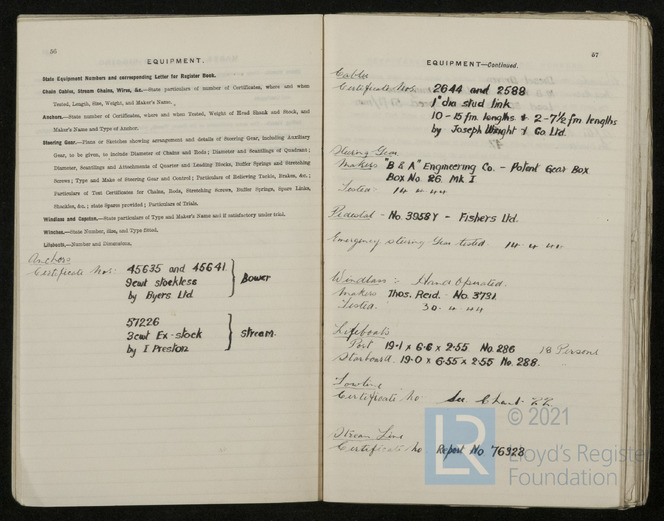 56
EQUIPMENT.
State Equipment Numbers and corresponding Letter for Register Book.
Chain Cable, Stream Chains, Wires, &c.—State particulars of number of Certificates, where and when
Tested, Length, Size, Weight, and Maker's Name.
Anchors.—State number of Certificates, where and when Tested, Weight of Head Shank and Stock, and
Maker's Name and Type of Anchor.
Steering Gear.—Plans or Sketches showing arrangement and details of Steering Gear, including Auxiliary
Gear, to be given, to include Diameter of Chains and Rods; Diameter and Scantlings of Quadrant;
Diameter, Scantlings and Attachments of Quarter and Leading Blocks, Buffer Springs and Stretching
Screws; Type and Make of Steering Gear and Control; Particulars of Relieving Tackle, Brakes, &c.;
Particulars of Test Certificates for Chains, Rods, Stretching Screws, Buffer Springs, Spare Links,
Shackles, &c.; state Spares provided; Particulars of Trials.
Windlass and Capstan.—State particulars of Type and Maker's Name and if satisfactory under trial.
Winches.—State Number, Size, and Type fitted.
Lifeboats.—Number and Dimensions.
Anchors
Certificate Nos: 45635 and 45641
9cwt stockless
by Byers Ltd
Bower
57226
3cwt Ex-stock
by I Preston
Stream.
57
EQUIPMENT—Continued.
Cables
Certificate Nos. 2644 and 2588
1" dia stud link
10-15 fm lengths & 2-7½ fm lengths
by Joseph Wright & Co Ltd.
Steering Gear
Makers "B & A" Engineering Co. - Patent Gear Box
Box No. 26. Mk I
Tested: 14 4 44
Pedestal - No. 3958Y - Fishers Ltd.
Emergency steering Gear tested 14 4 44
Windlass :- Hand Operated.
Makers Thos. Reid. No. 3791
Tested. 30. 4. 44
Lifeboats
Port 19·1 x 6·6 x 2·55 No. 286 18 Persons
Starboard. 19·0 x 6·55 x 2·55 No. 288. "
Towline
Certificate No See
Stream Line
Certificate No Report No 76928
LR
© 2021
Lloyd's Register
Foundation